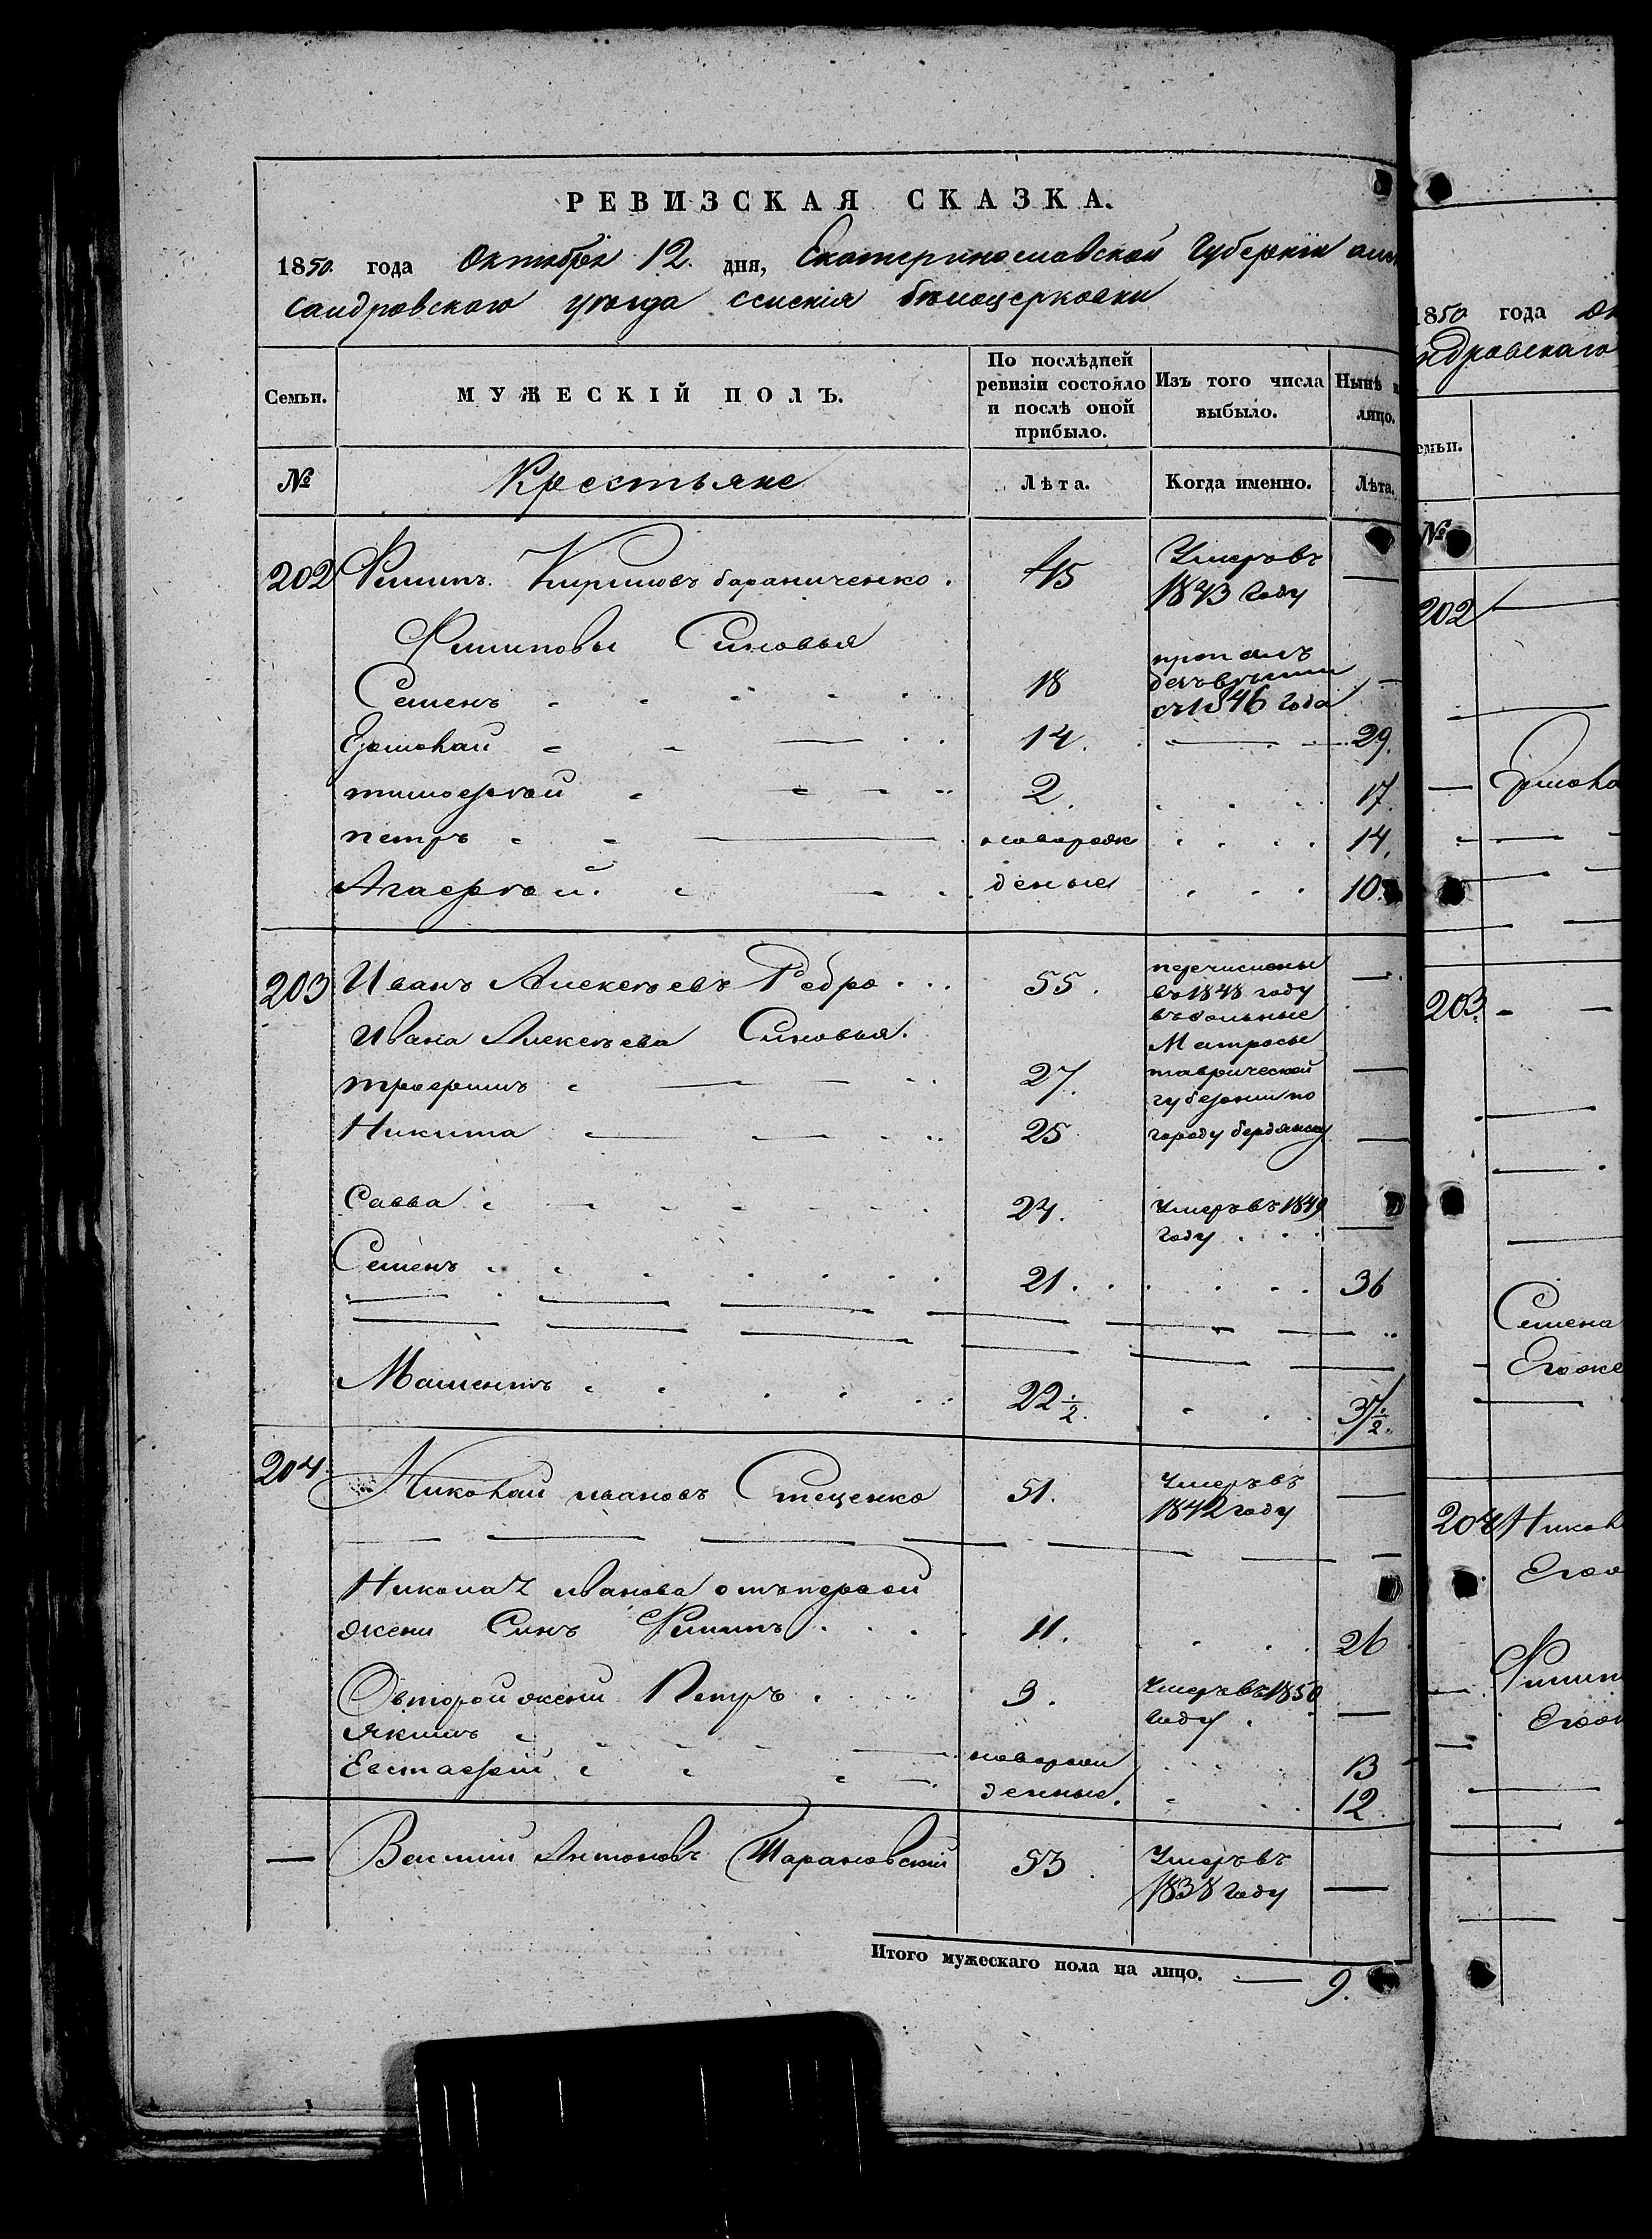 РЕВИЗСКАЯ СКАЗКА.
1850 года Октября 12 дня, Екатеринославской Губернiи алек
сандровскаго уѣзда селенiя бѣлоцерковки
Семьи. МУЖЕСКІЙ ПОЛЪ. По послѣдней ревизіи состояло и послѣ оной прибыло. Изъ того числа выбыло. Нынѣ н лицо.
№ Крестьяне Лѣта. Когда именно. Лѣта.
202 Филипъ Кириловъ бараниченко. 45 Умеръ въ 1843 Году —
Филиповы Синовья
Семенъ 18 пропалъ безъ вѣсти съ 1846 Года —
Ермолай 14. — 29.
тимофѣй 2. 17.
петръ новорож 14.
Агафѣй. деные 10.
203 Иванъ Алексѣевъ Ребро 55. перечислены въ 1848 году —
Ивана Алексѣева Синовья. въ вольные Матросы
трофимъ 27. таврической губернии по —
Никита 25 городу бердянску —
Савва 24. Умеръ въ 1849 Году —
Семенъ 21. 36
22 1/2. 37 1/2.
204. Николай ивановъ Стеценко 51. Умеръ въ 1842 году —
Николая иванова отъ первой
жени Синъ Филипъ 11. 26
От второй жени Петръ 3. Умеръ въ 1850 Году —
якимъ новорож 13
Евстафий денные. 12
— Василий Антоновъ Тарановский 53. Умеръ въ 1838 Году —
Итого мужескаго пола на лицо. — 9.
1850 года Ок
ндровскаго
емьи.
№
202
Ермола
203.
Семена
Его же
204 Никол
Его
Филип
Его